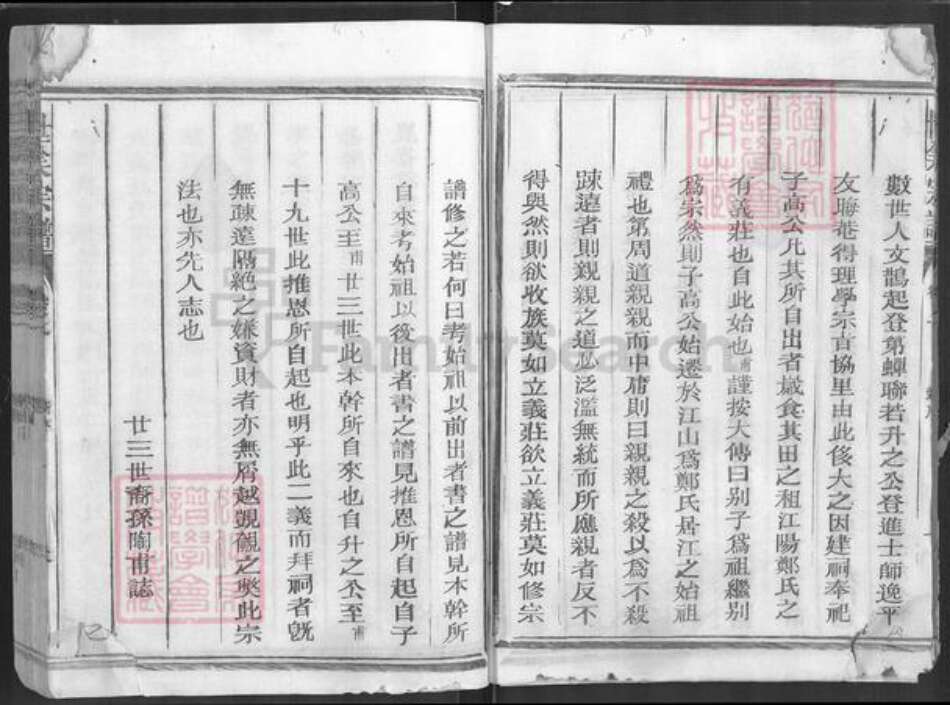 數世人文鵲起登第蟬聯若升之公登進士師逸平
友晦菴得理學宗旨協里由此侈大之因建祠奉祀
子高公凡其所自出者歲食其田之租江陽鄭氏之
有義莊也自此始也甫謹按大傳曰别子爲祖繼别
爲宗然則子高公始遷於江山爲鄭氏居江之始祖
禮也第周道親親而中庸則曰親親之殺以爲不殺
踈遠者則親親之道必泛濫無統而所應親者反不
得與然則欲收族莫如立義莊欲立義莊莫如修宗
譜修之若何曰考始祖以前出者書之譜見木幹所
自來考始祖以後出者書之譜見推恩所自起自子
高公至甫廿三世此本幹所自來也自升之公至甫
十九世此推恩所自起也明乎此二義而拜祠者旣
無疎遠隔絶之嫌資財者亦無屑越覬覦之獘此宗
法也亦先人志也
廿三世裔孫陶甫誌
FamilySearch